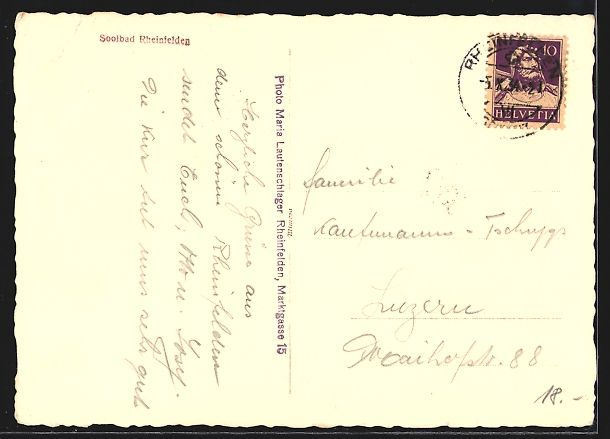 Soolbad Rheinfelden
Herzliche Grüsse aus
dem schönen Rheinfelden
sendet Euch,
Die Kur tut uns sehr gut
Photo Maria Lautenschlager Rheinfelden, Marktgasse 15
RHEINFELDEN
10
HELVETIA
Familie
Kaufmann - Tschupp
Luzern
Maihofstr. 88
18.-